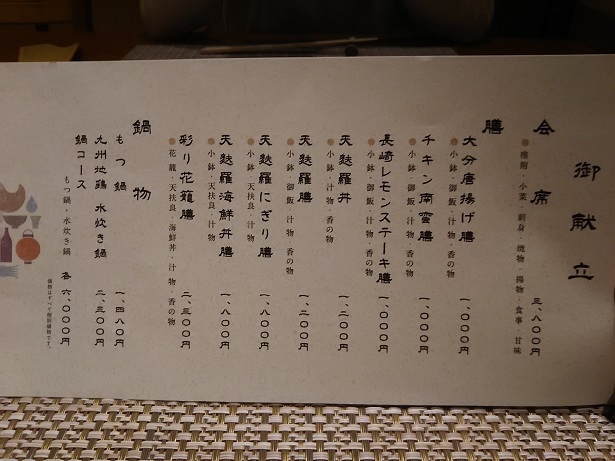 御献立
会席 三、八〇〇円
種附・小菜・刺身・焼物・揚物・食事・甘味
膳
大分唐揚げ膳 一、〇〇〇円
小鉢・御飯・汁物・香の物
チキン南蛮膳 一、〇〇〇円
小鉢・御飯・汁物・香の物
長崎レモンステーキ膳 一、〇〇〇円
小鉢・御飯・汁物・香の物
天麩羅丼 一、二〇〇円
小鉢・汁物・香の物
天麩羅膳 一、二〇〇円
小鉢・御飯・汁物・香の物
天麩羅にぎり膳 一、八〇〇円
小鉢・天扶良・汁物
天麩羅海鮮丼膳 一、八〇〇円
小鉢・天扶良・汁物
彩り花籠膳 二、三〇〇円
花籠・天扶良・海鮮丼・汁物・香の物
鍋物
もつ鍋 一、四八〇円
九州地鶏 水炊き鍋 二、三〇〇円
鍋コース
もつ鍋・水炊き鍋 各 六、〇〇〇円
価格はすべて税別価格です。